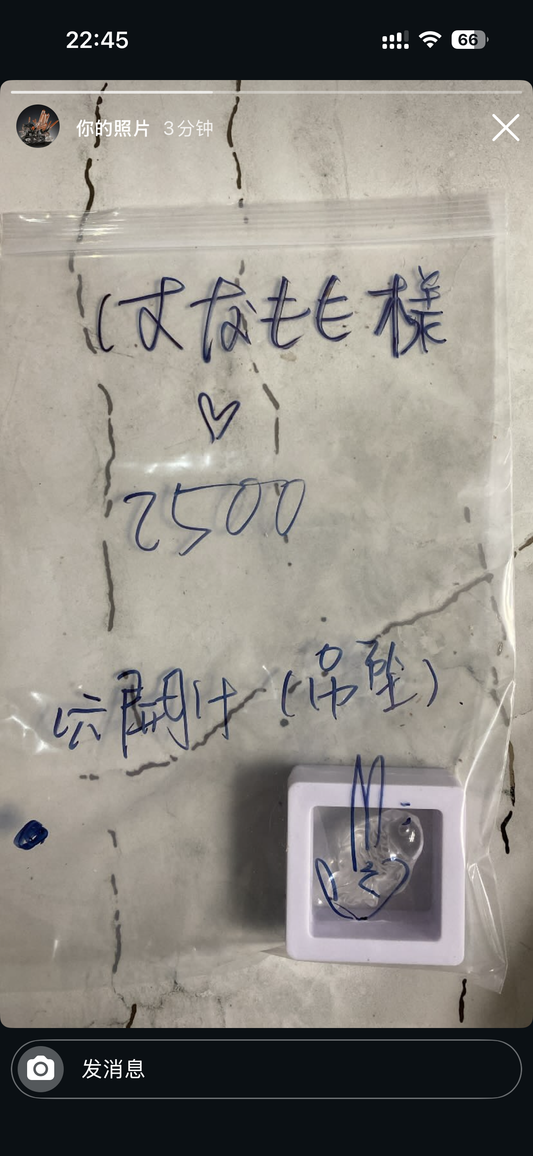 22:45
66
你的照片 3分钟
はなもも 様
♡
2500
(吊坠)
发消息